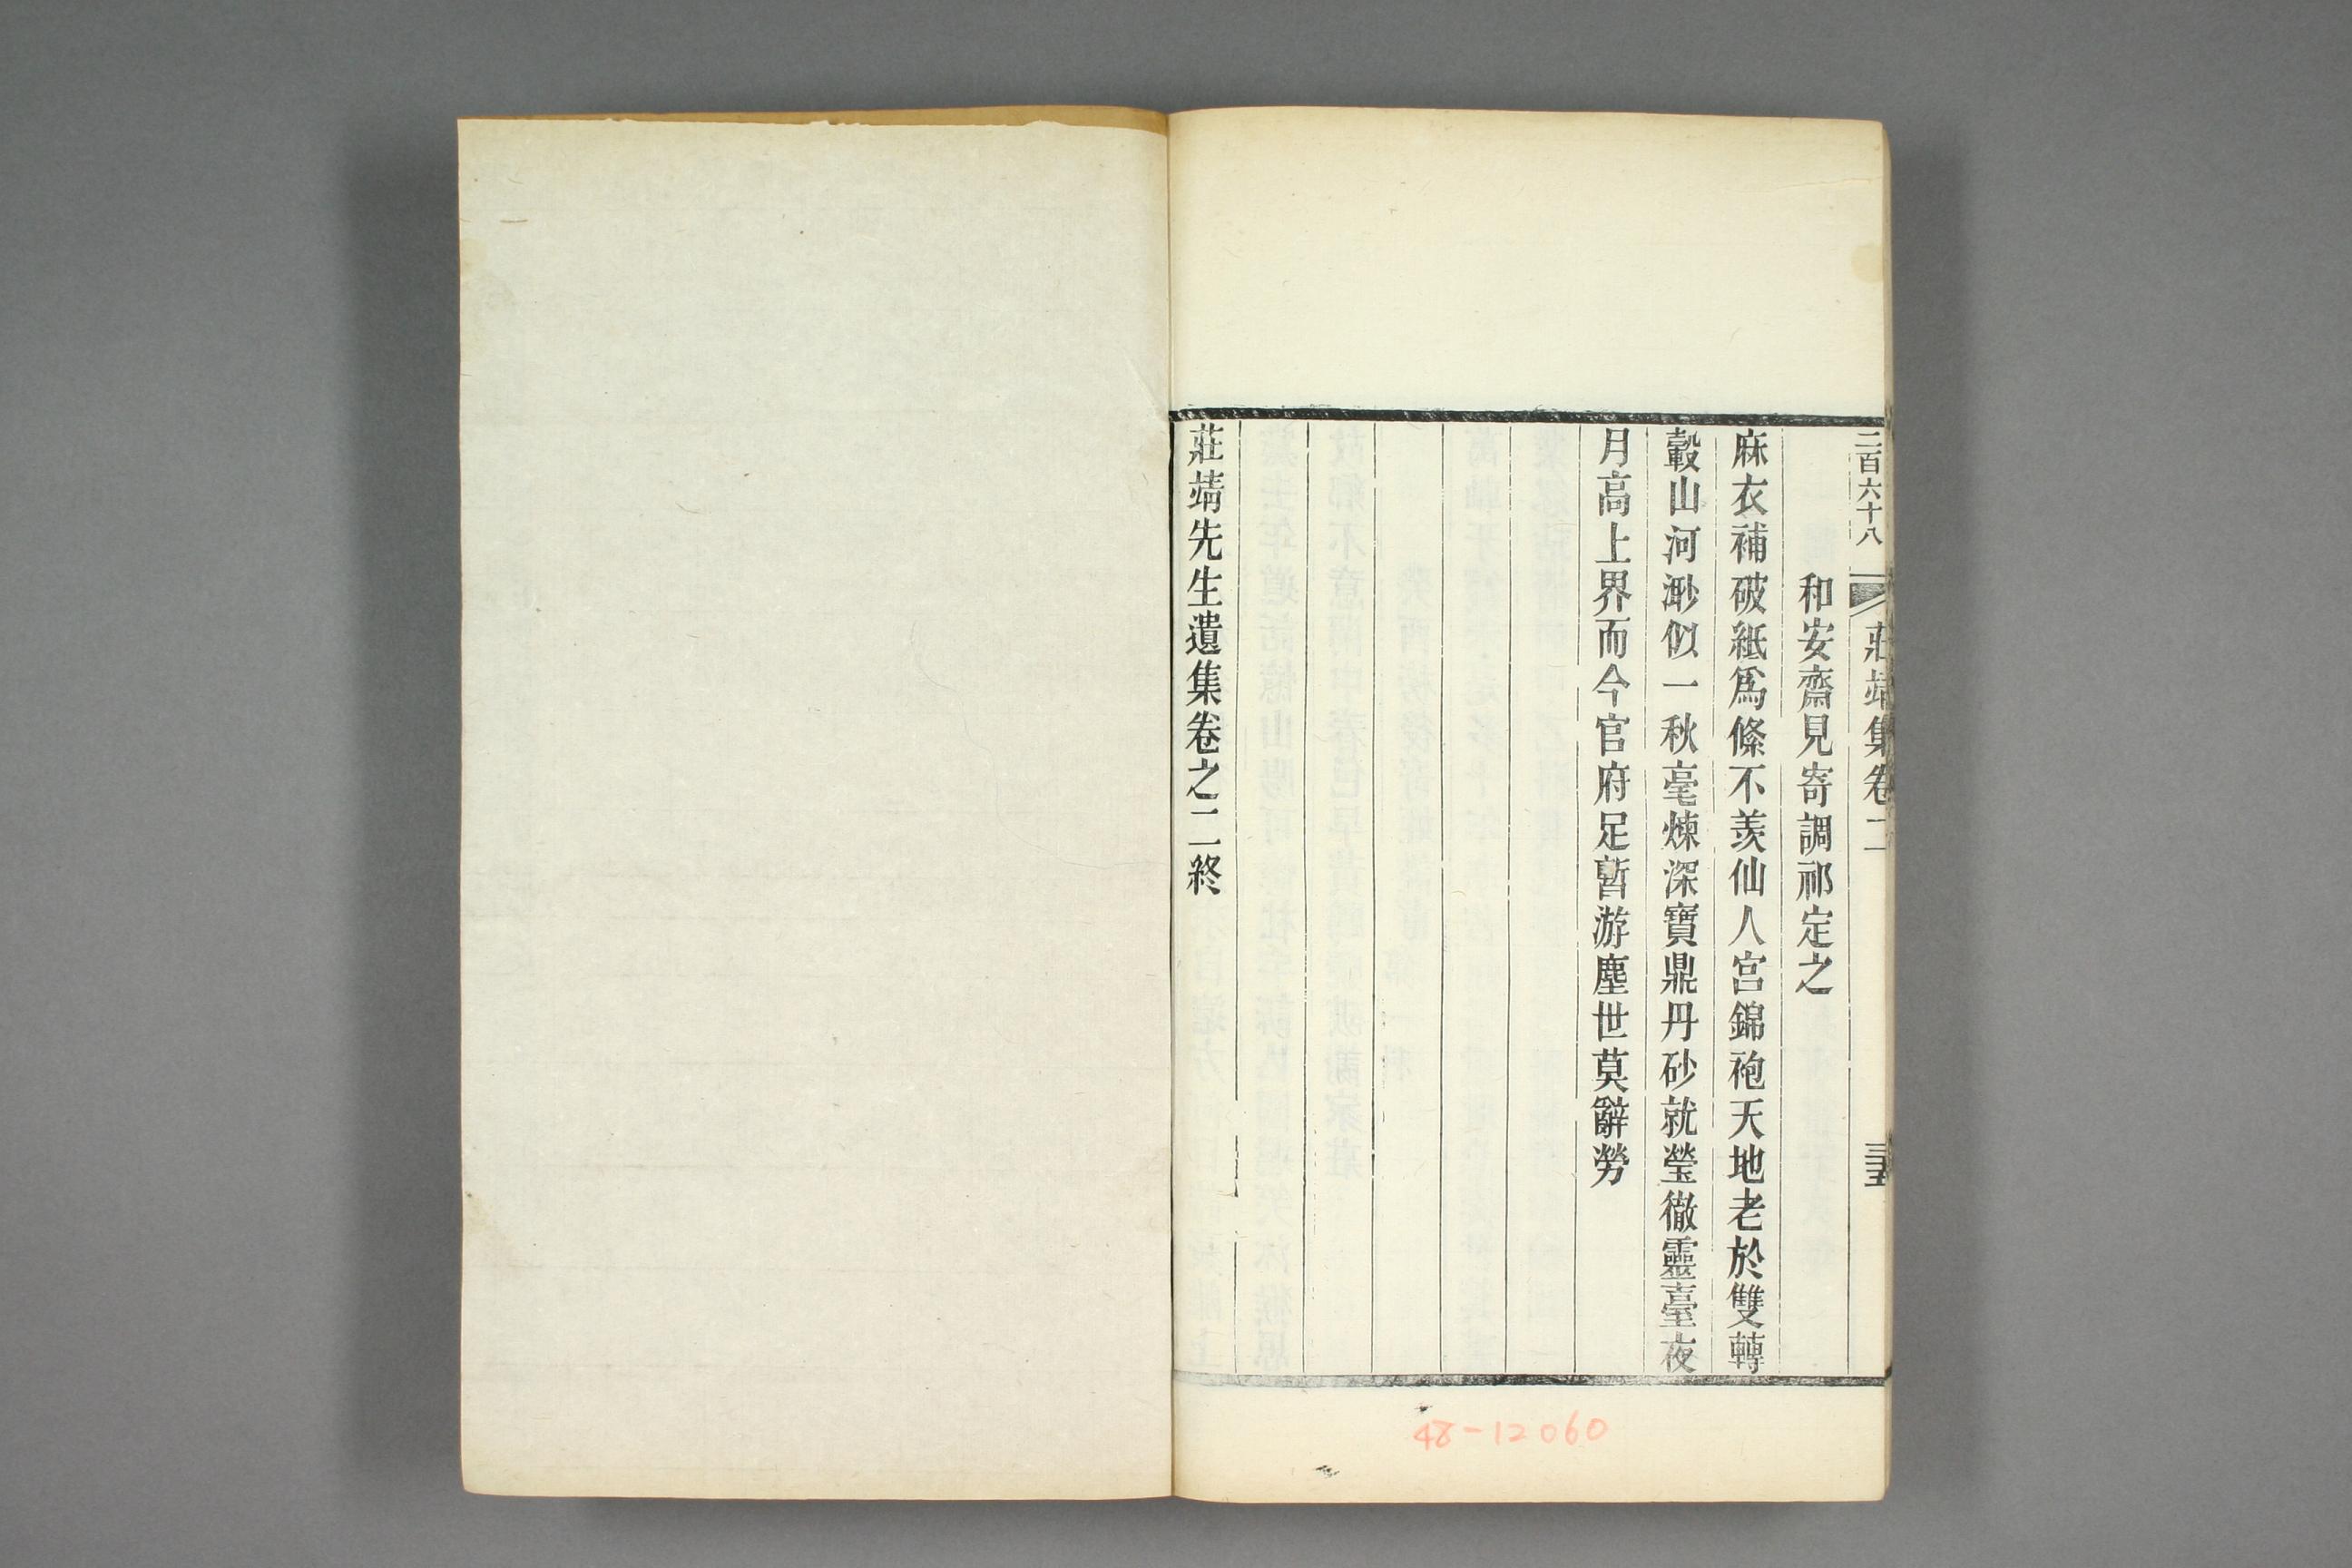 二百六十八
莊靖集卷二
三五
和安齋見寄調祁定之
麻衣補破紙爲絛不羡仙人宮錦袍天地老於雙轉
轂山河渺似一秋毫煉深寶鼎丹砂就瑩徹靈臺夜
月高上界而今官府足暫游塵世莫辭勞
莊靖先生遺集卷之二終
48-12060